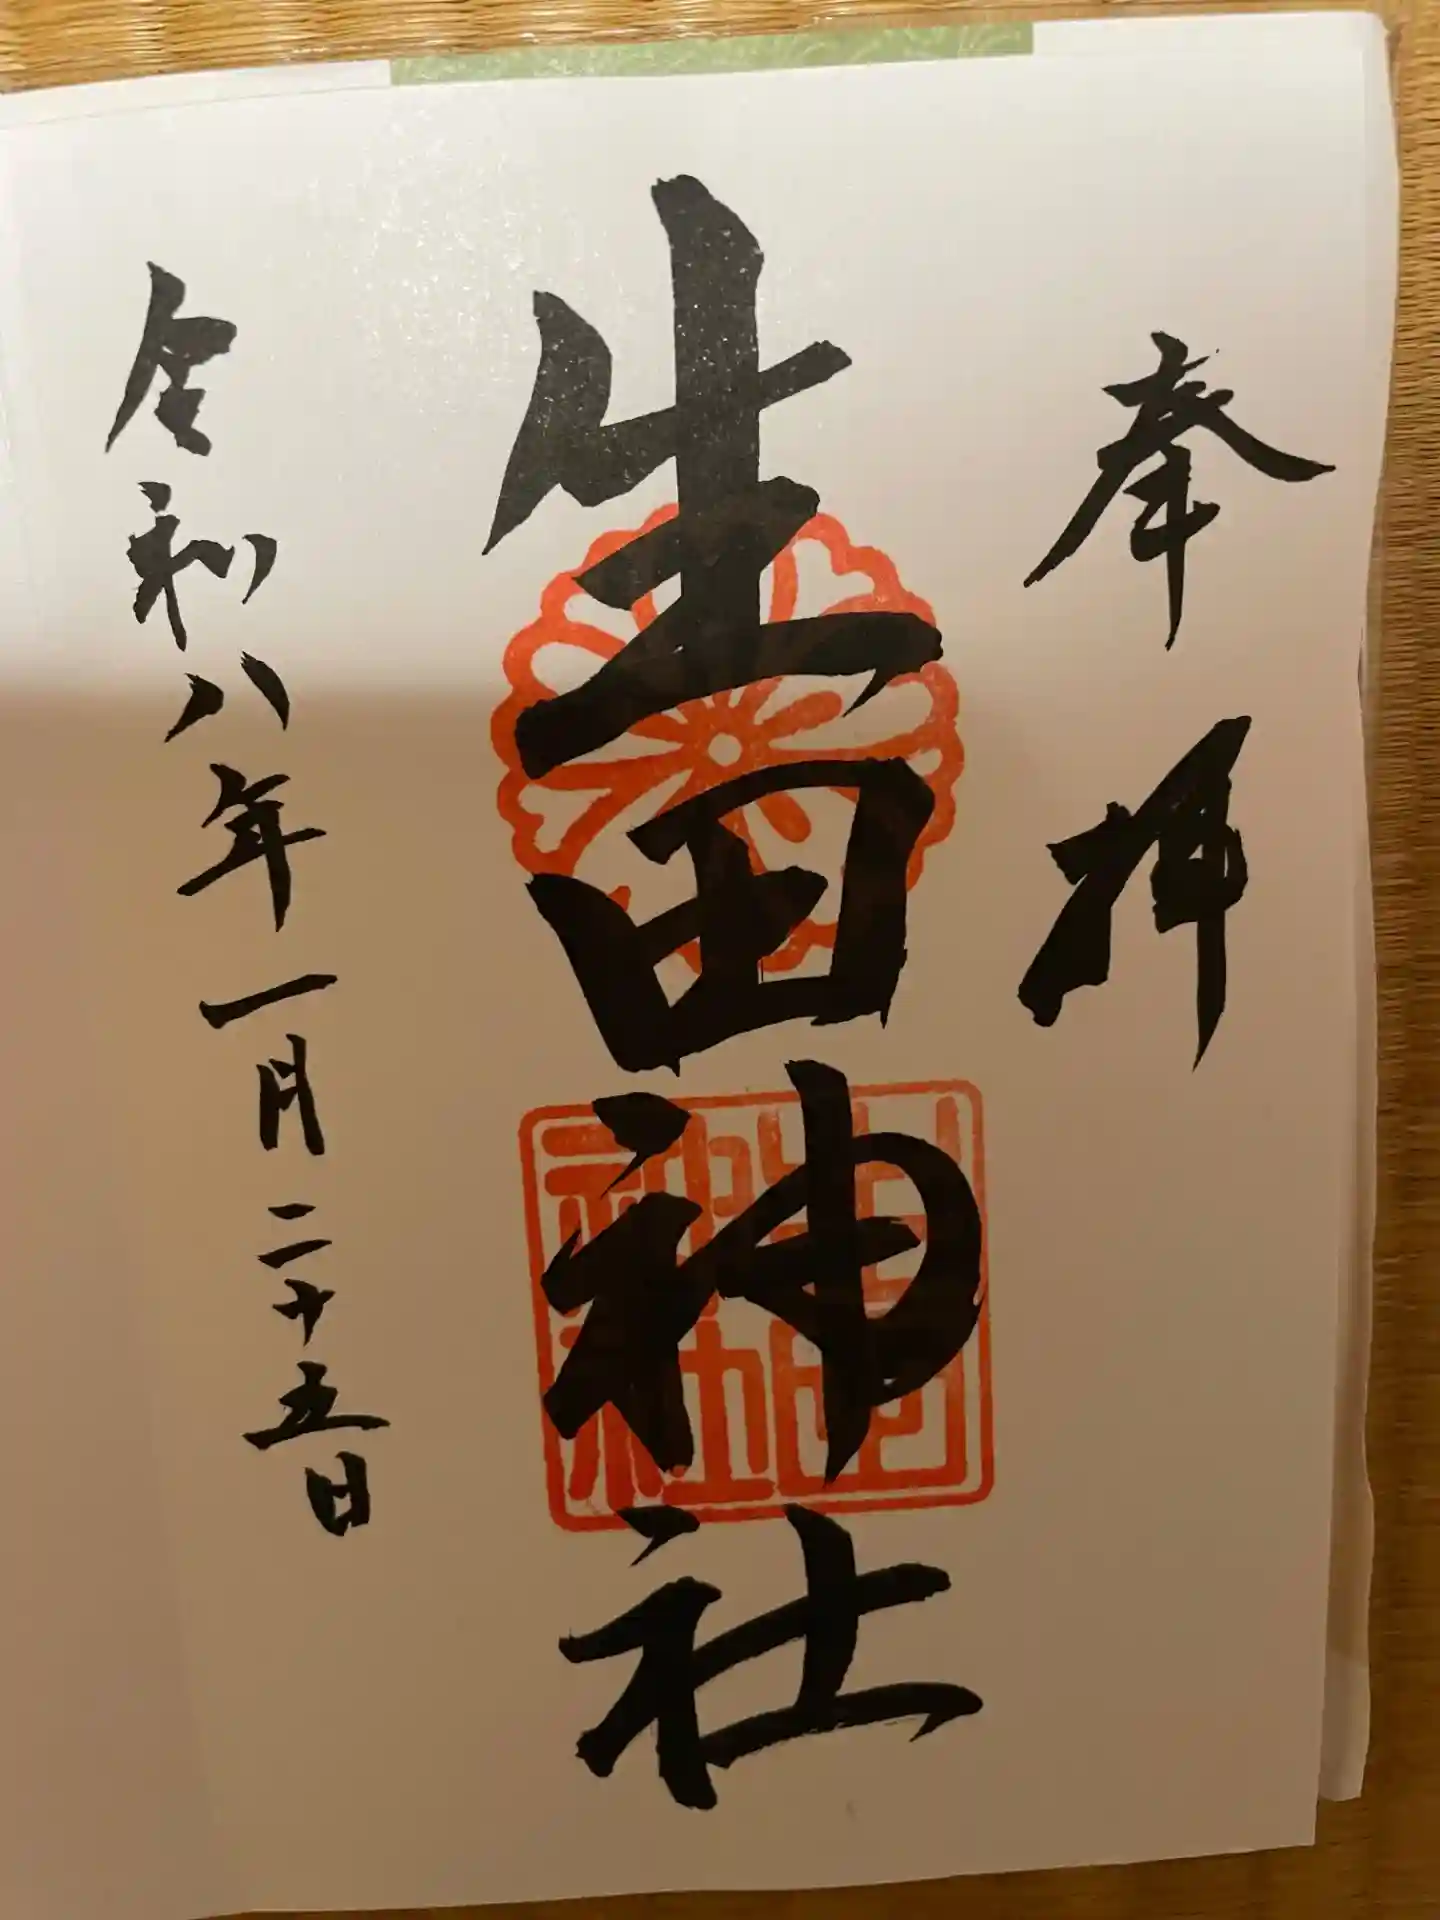 奉拝
生田神社
生田
神社
令和八年一月二十五日